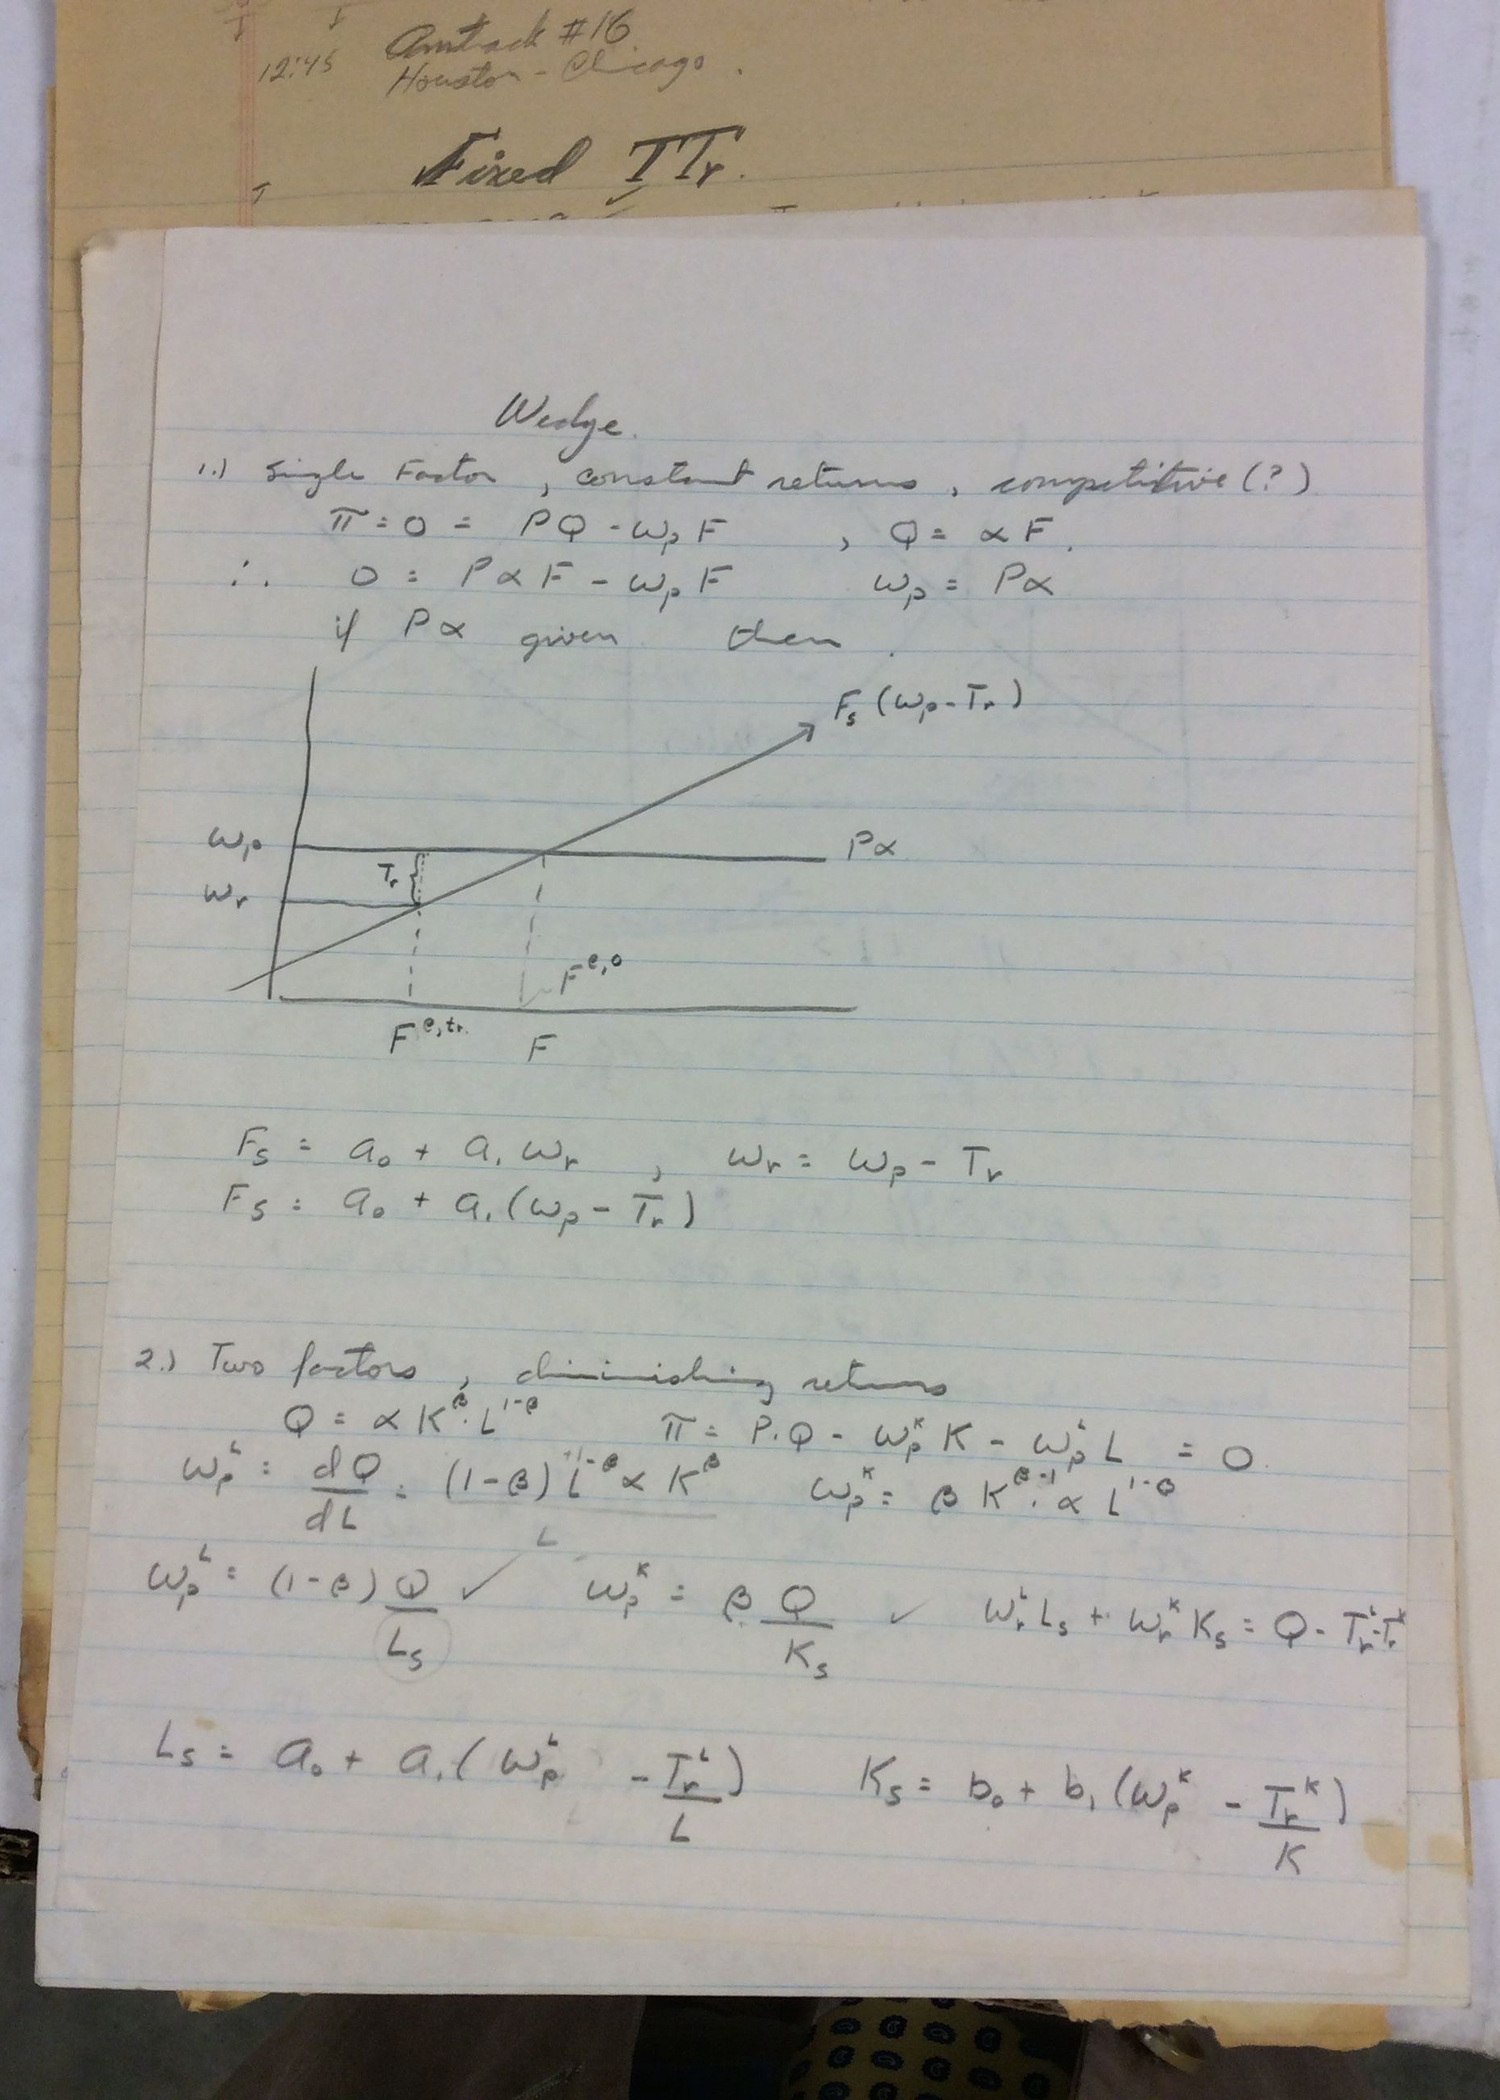 12:45 Amtrack #16
Houston - Chicago.
Fixed TTr.
Wedge.
1.) Single Factor, constant returns, competitive (?)
π = 0 = PQ - ωp F , Q = αF.
∴ 0 = PαF - ωp F ωp = Pα
if Pα given then.
Fs (ωp - Tr)
ωp Pα
Tr {
ωr
F^e,o
F^e,tr. F
Fs = a₀ + a₁ ωr , ωr = ωp - Tr
Fs = a₀ + a₁ (ωp - Tr)
2.) Two factors, diminishing returns
Q = αK^β · L^1-β π = P.Q - ωp^K K - ωp^L L = 0.
ωp^L = dQ/dL = (1-β) L^-β α K^β ωp^K = β K^β-1 · α L^1-β
L
ωp^L = (1-β) Q/Ls ✓ ωp^K = β Q/Ks ✓ ωr^L Ls + ωr^K Ks = Q - Tr^L - Tr^K
Ls = a₀ + a₁ (ωp^L - Tr^L/L) Ks = b₀ + b₁ (ωp^K - Tr^K/K)